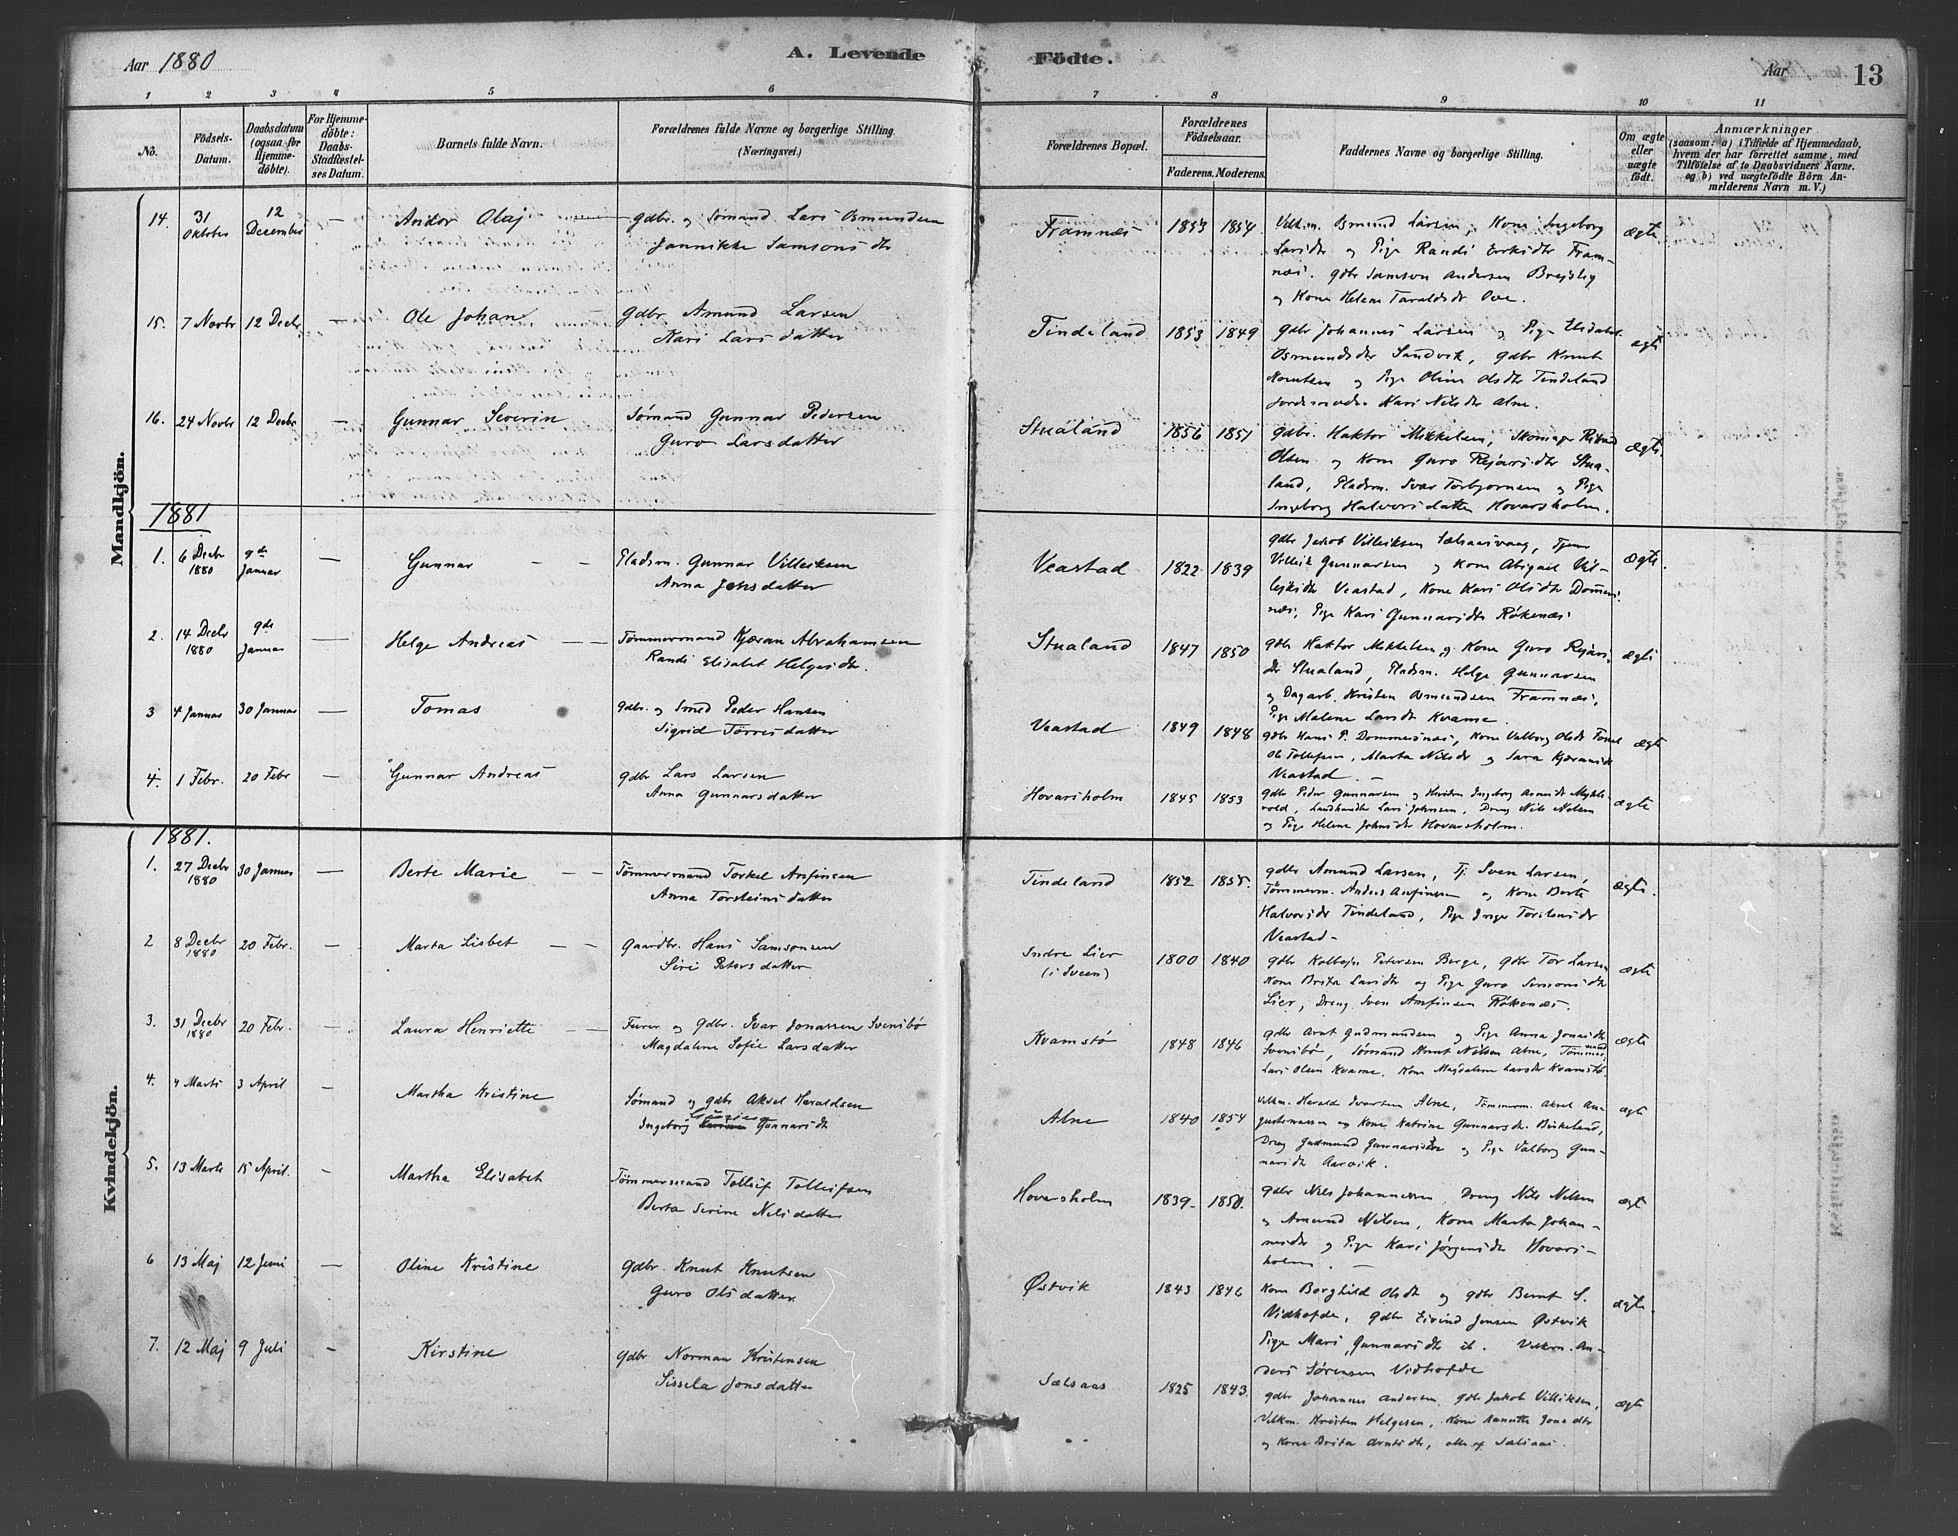 Aar 1880
A. Levende Födte.
Aar
13
1 2 3 4 5 6 7 8 9 10 11
No.
Födsels-Datum.
Daabsdatum (ogsaa for Hjemme-döbte).
For Hjemme-döbte: Daabs-Stadfæstel-ses Datum.
Barnets fulde Navn.
Forældrenes fulde Navne og borgerlige Stilling.
(Næringsvei.)
Forældrenes Bopæl.
Forældrenes Födselsaar.
Faderens. Moderens.
Faddernes Navne og borgerlige Stilling.
Om ægte eller uægte födt.
Anmærkninger
(saasom: a) i Tilfælde af Hjemmedaab, hvem der har forrettet samme, med Tilföielse af to Daabsvidners Navne, og b) ved uægtefödte Börn An-melderens Navn m. V.)
Mandkjön.
14. 31 Oktober 12 December — Andor Olaj gdbr. og Sømand Lars Osmundsen
Jannikke Samsonsdtr
Framnæs 1853 1854 ægte
Velkm. Osmund Larsen, Kone Ingeborg
Larsdtr og Pige Randi Eriksdtr Fram-
næs. gdbr Samson Andersen
og Kone Helene Taraldsdtr Ove.
15. 7 Novbr 12 Decbr — Ole Johan gdbr. Amund Larsen
Kari Larsdatter
Tindeland 1853 1849 ægte
gdbr Johannes Larsen og Pige Elisabet
Osmundsdtr Sandvik, gdbr Knut
Knutsen og Pige Oline Olsdtr Tindeland
Jordemoder Kari Nilsdtr Alne.
16. 24 Novbr 12 Decbr — Gunnar Severin Sømand Gunnar Pedersen
Guro Larsdatter
Stualand 1856 1851 ægte.
gdbr. Haktor Mikkelsen, Skomager
Olsen og Kone Guro Rejarsdtr Stua-
land, Pladsm. Ivar Torbjornsen og Pige
Ingeborg Halvorsdatter Hovarsholm.
1881
1. 6 Decbr 1880 9de Januar — Gunnar — — Pladsm. Gunnar Villeiksen
Anna Jensdatter
Veastad 1822 1839 ægte.
gdbr Jakob Villeiksen Sælsaasvaag, Tjener
Villeik Gunnarsen og Kone Abigael Vil-
leiksdtr Veastad, Kone Kari Olsdtr Dommers-
næs, Pige Kari Gunnarsdtr Røkenæs
2. 14 Decbr 1880 9de Januar — Helge Andreas — — Tømmermand Kjæran Abrahamsen
Randi Elisabet Helgesdtr.
Stualand 1847 1850 ægte
gdbr Haktor Mikkelsen og Kone Guro Rejars-
dtr Stualand, Pladsm. Helge Gunnarsen
og Dagarb. Kristen Osmundsen Framnæs,
Pige Malene Larsdtr Kvame.
3 4 Januar 30 Januar — Tomas gdbr. og Smed Peder Hansen
Sigrid Tørresdatter
Veastad 1849 1848 ægte
gdbr Hans P. Dommersnæs, Kone Valborg Olsdtr
Ole Tollefsen, Marta Nilsdtr og Sara Kjæransdtr
Veastad. —
4. 1 Febr. 20 Febr — Gunnar Andreas gdbr Lars Larsen
Anna Gunnarsdatter
Hovarsholm 1845 1853 ægte
gdbr Peder Gunnarsen og Ingeborg
Landhandler Lars Johnsen, Dreng Nils Nelsen
og Pige Helene Johnsdtr Hovarsholm.
Kvindekjön.
1881.
1. 27 Decbr 1880 30 Januar — Berte Marie — — Tømmermand Torkel Anfinsen
Anna Torsteinsdatter
Tindeland 1852 1855. ægte.
gdbr Amund Larsen, Tj. Sven Larsen,
Tømmerm. Anders Anfinsen og Kone Berte
Halvorsdtr Tindeland, Pige Inger Torstensdtr
Veastad.
2 8 Decbr 1880 20 Febr. — Marta Lisbet — — Gaardbr. Hans Samsonsen
Siri Petersdatter
Indre Lier (i Sveen) 1800 1840 ægte
gdbr Kolbejn Petersen Berge, gdbr Tor Larsen
Kone Brita Larsdtr og Pige Guro Simonsdtr
Lier, Dreng Sven Anfinsen Røkenæs.
3. 31 Decbr 1880 20 Febr. — Laura Henriette — — Furer og gdbr. Ivar Jonassen Svensbø
Magdalene Sofie Larsdatter
Kvamstø 1848 1846 ægte
gdbr Arnt Gudmundsen og Pige Anna Jonasdtr
Svensbø, Sømand Knut Nilsen Alne, Tømmermand
Lars Olsen Kvame, Kone Magdalene Larsdtr Kvamstø.
4. 4 Marts 3 April — Martha Kristine Sømand og gdbr Aksel Haraldsen
Ingeborg Gunnarsdtr
Alne 1840 1854 ægte
Velkm. Harald Ivarsen Alne, Tømmerm. Aksel
og Kone Katrine Gunnarsdtr Birkeland,
Dreng Gudmund Gunnarsen og Pige Valborg Gun-
narsdtr Aarvik.
5. 13 Marts 15 April. — Martha Elisabet Tømmermand Tolleif Tolleifsen
Berta Serine Nelsdatter
Hovarsholm 1839 1850. ægte
gdbr Nils Johannessen, Dreng Nils Nelsen
og Amund Nilsen, Kone Marta Johan-
nesdtr og Pige Kari Jørgensdtr Hovars-
holm. —
6 13 Maj 12 Juni — Oline Kristine gdbr. Knut Knutsen
Guro Olsdatter.
Østvik 1843 1846 ægte.
Kone Borghild Olsdtr og gdbr Bernt S.
Vidhofde, gdbr Eivind Jensen Østvik
Pige Mari Gunnarsdtr ib. Velkm. An-
ders Sørensen Vidhofde
7. 12 Maj 9 Juli Kirstine gdbr Norman Kristensen
Sissela Jonsdatter
Sælsaas 1825 1843. ægte
gdbr Johannes Andersen, gdbr Jakob Villiksen,
Velkm. Kristen Helgesen, Kone Jonsdtr
og Kone Brita Arntsdtr, alle af Sælsaas.